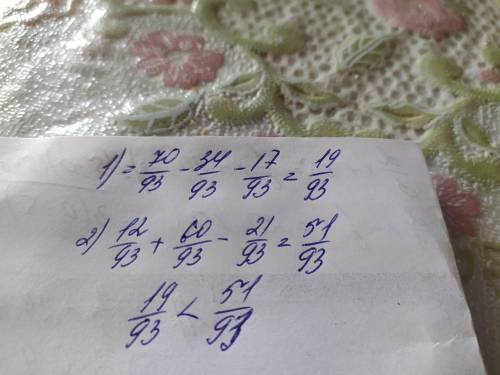 1) = 70/93 - 34/93 - 17/93 = 19/93
2) 12/93 + 60/93 - 21/93 = 51/93
19/93 < 51/93